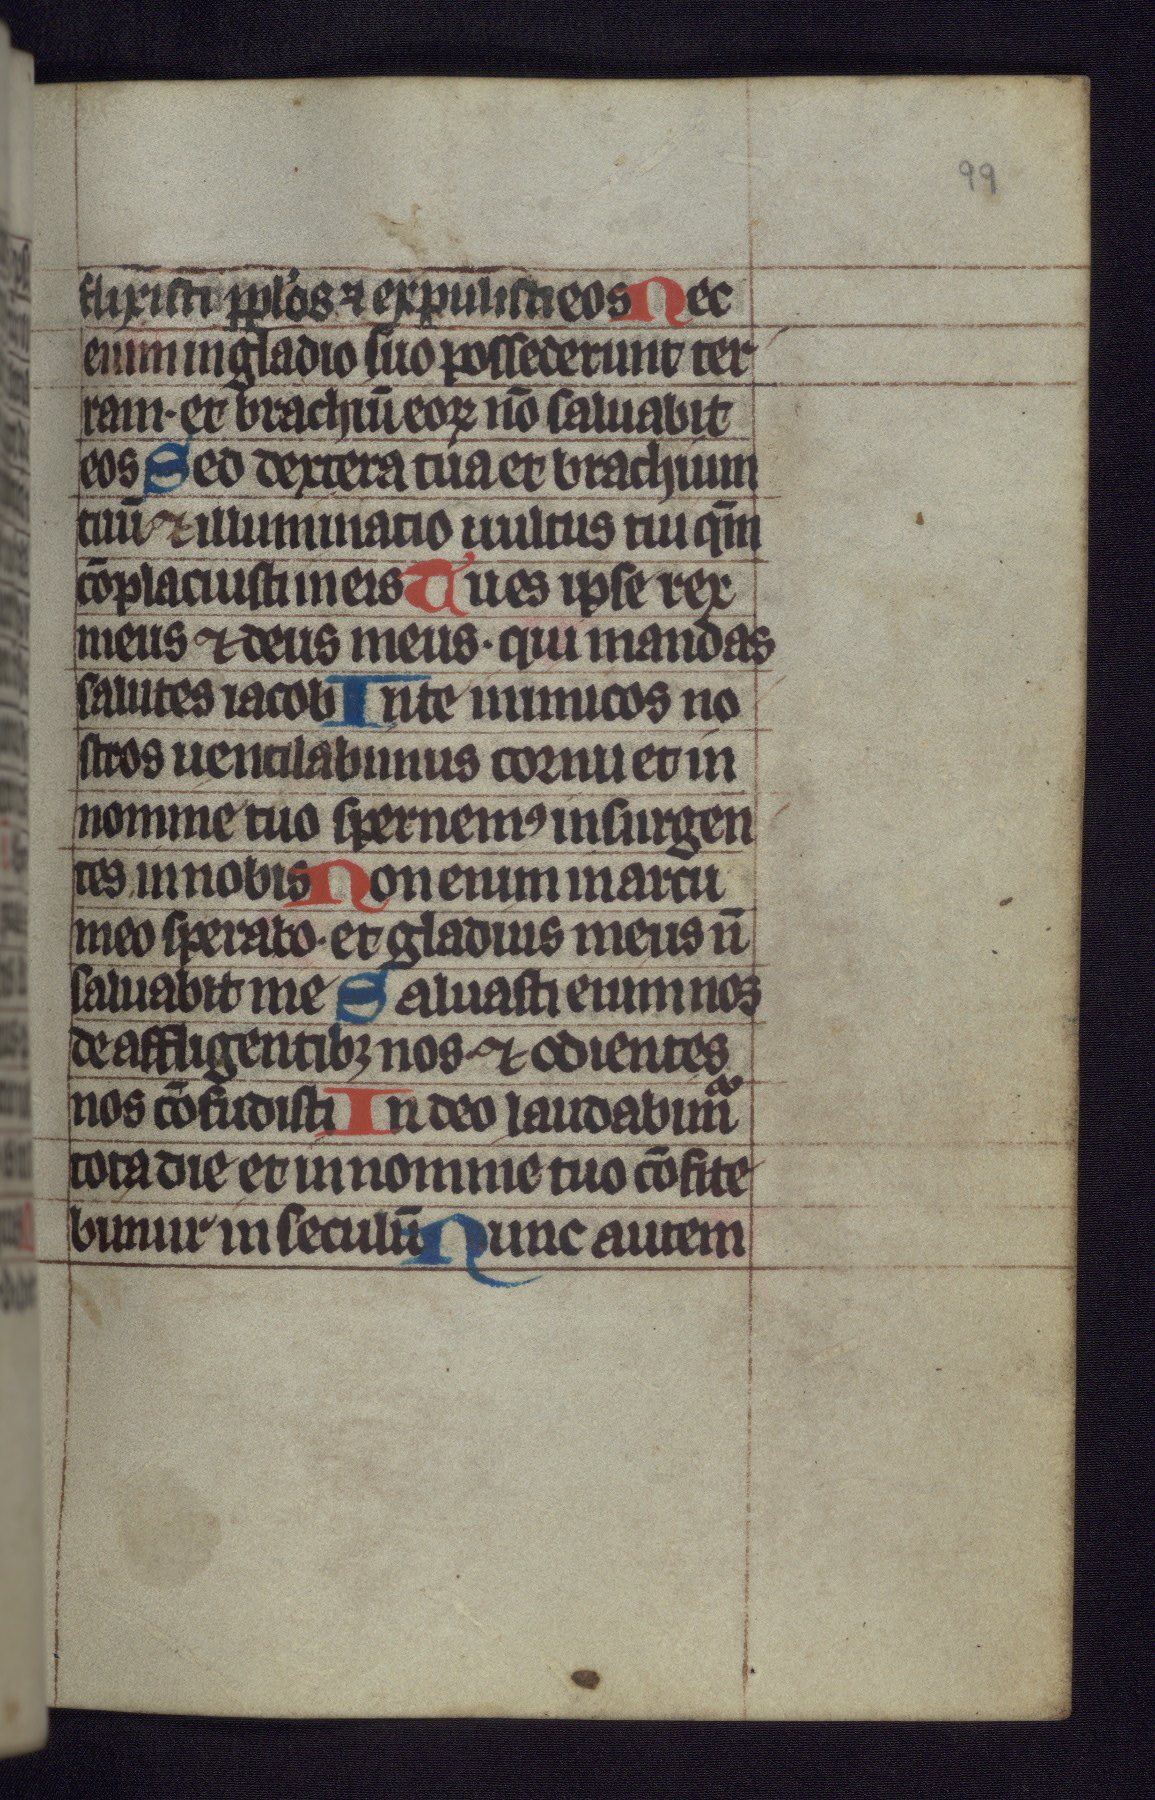 99
flixisti pplos ⁊ expulisti eos Nec
enim in gladio suo possederunt ter
ram· et brachiū eoꝝ nō saluabit
eos Sed dextera tua et brachium
tuū ⁊ illuminatio uultus tui qm̄
cōplacuisti in eis Tu es ipse rex
meus ⁊ deus meus· qui mandas
salutes iacob In te inimicos no
stros uentilabimus cornu et in
nomine tuo spernemꝰ insurgen
tes in nobis Non enim in arcu
meo sperabo· et gladius meus ñ
saluabit me Saluasti enim nos
de affligentibꝫ nos· ⁊ odientes
nos cōfudisti In deo laudabimᷓ
tota die et in nomine tuo cōfite
bimur in seculū Nunc autem